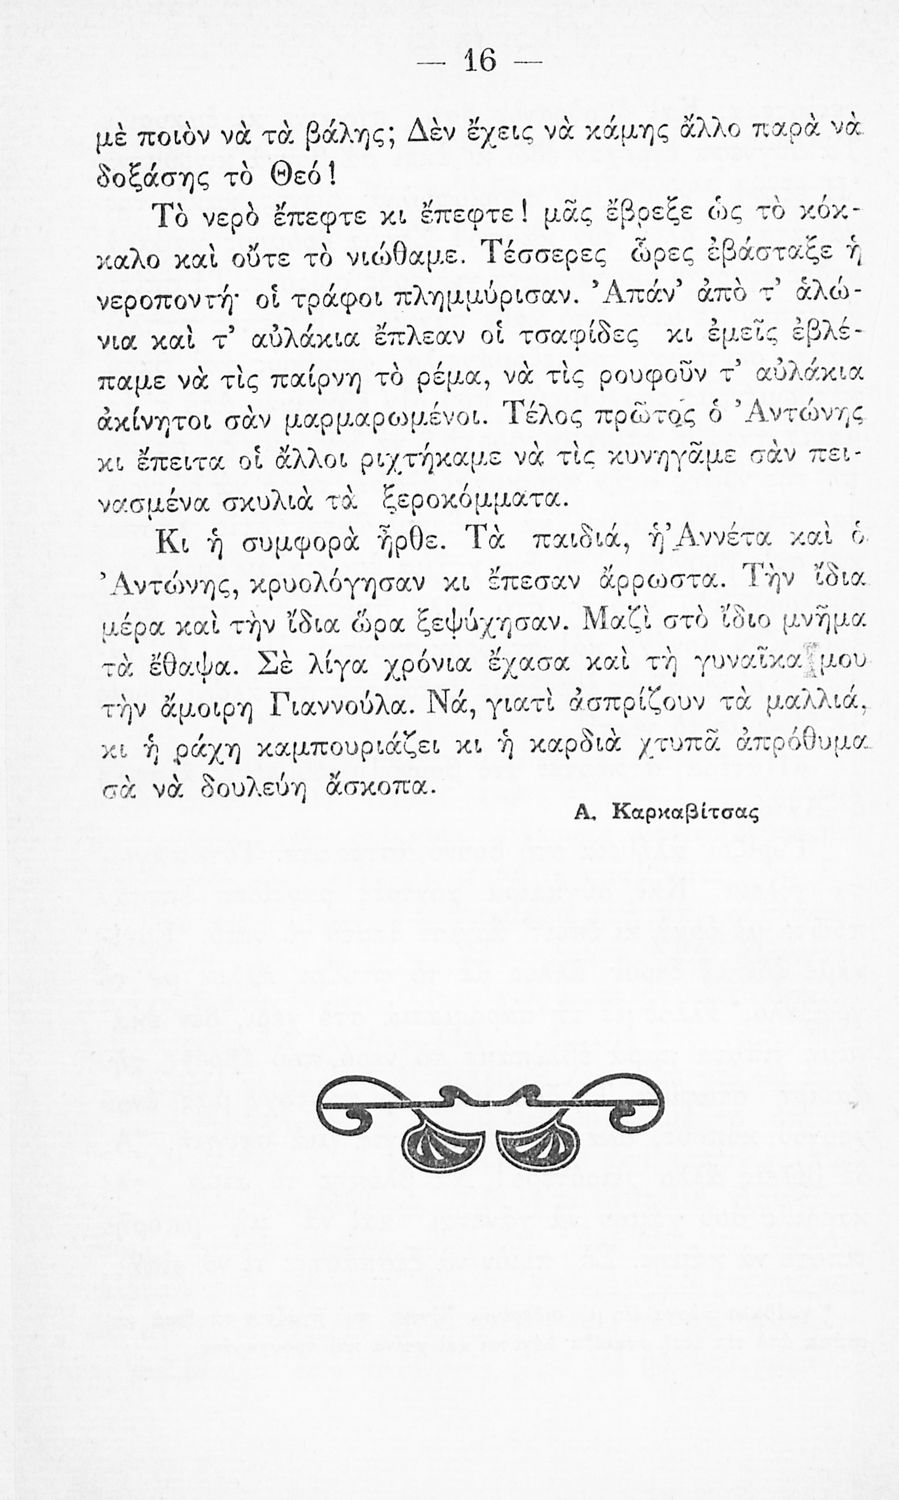 — 16 —
μὲ ποιὸν νὰ τὰ βάλης; Δὲν ἔχεις νὰ κάμης ἄλλο παρὰ νὰ
δοξάσης τὸ Θεό!
Τὸ νερὸ ἔπεφτε κι ἔπεφτε! μᾶς ἔβρεξε ὡς τὸ κόκ-
καλο καὶ οὔτε τὸ νιώθαμε. Τέσσερες ὧρες ἐβάσταξε ἡ
νεροποντή· οἱ τράφοι πλημμύρισαν. Ἀπάν’ ἀπὸ τ’ ἁλώ-
νια καὶ τ’ αὐλάκια ἔπλεαν οἱ τσαφίδες κι ἐμεῖς ἐβλέ-
παμε νὰ τὶς παίρνη τὸ ρέμα, νὰ τὶς ρουφοῦν τ’ αὐλάκια
ἀκίνητοι σὰν μαρμαρωμένοι. Τέλος πρῶτος ὁ Ἀντώνης
κι ἔπειτα οἱ ἄλλοι ριχτήκαμε νὰ τὶς κυνηγᾶμε σὰν πει-
νασμένα σκυλιὰ τὰ ξεροκόμματα.
Κι ἡ συμφορὰ ἦρθε. Τὰ παιδιά, ἡ Ἀννέτα καὶ ὁ
Ἀντώνης, κρυολόγησαν κι ἔπεσαν ἄρρωστα. Τὴν ἴδια
μέρα καὶ τὴν ἴδια ὥρα ξεψύχησαν. Μαζὶ στὸ ἴδιο μνῆμα
τὰ ἔθαψα. Σὲ λίγα χρόνια ἔχασα καὶ τὴ γυναῖκα μου
τὴν ἄμοιρη Γιαννούλα. Νά, γιατὶ ἀσπρίζουν τὰ μαλλιά,
κι ἡ ράχη καμπουριάζει κι ἡ καρδιὰ χτυπᾶ ἀπρόθυμα
σὰ νὰ δουλεύη ἄσκοπα.
Α. Καρκαβίτσας